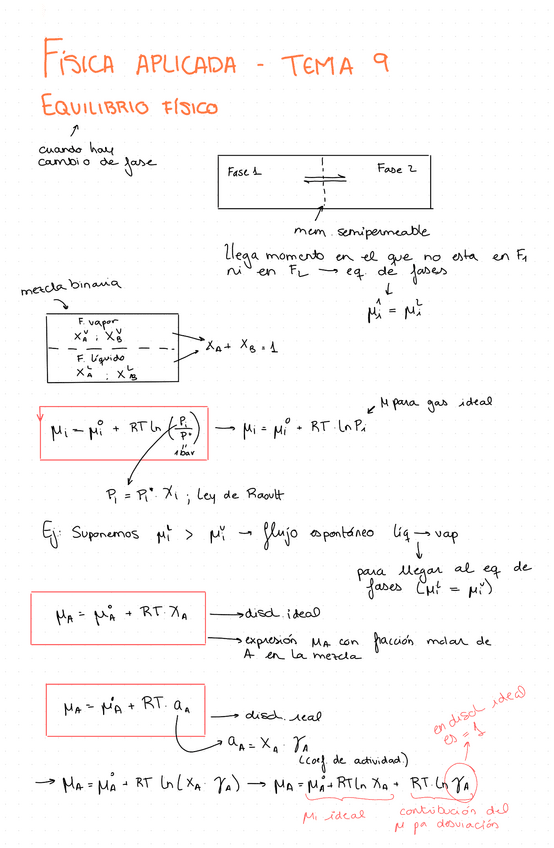 FÍSICA APLICADA - TEMA 9
EQUILIBRIO FÍSICO
cuando hay
cambio de fase
Fase 1
Fase 2
mem. semipermeable
llega momento en el que no esta en F₁
ni en F₂ → eq. de fases
μᵢ¹ = μᵢ²
mezcla binaria
F. vapor
X_A^V ; X_B^V
F. líquido
X_A^L ; X_B^L
X_A + X_B = 1
μᵢ = μᵢ° + RT ln (Pᵢ/P°) → μᵢ = μᵢ° + RT · ln Pᵢ
1 bar
μ para gas ideal
Pᵢ = Pᵢ* · Xᵢ ; Ley de Raoult
Ej: Suponemos μᵢ^L > μᵢ^V → flujo espontáneo líq → vap
para llegar al eq de
fases (μᵢ^L = μᵢ^V)
μ_A = μ_A° + RT · X_A → disol. ideal
→ expresión μ_A con fracción molar de
A en la mezcla
μ_A = μ_A° + RT · a_A → disol. real
a_A = X_A · γ_A
(coef. de actividad)
en disol ideal
es = 1
→ μ_A = μ_A° + RT ln (X_A · γ_A) → μ_A = μ_A° + RT ln X_A + RT · ln γ_A
μᵢ ideal
contribución del
μ pa desviación